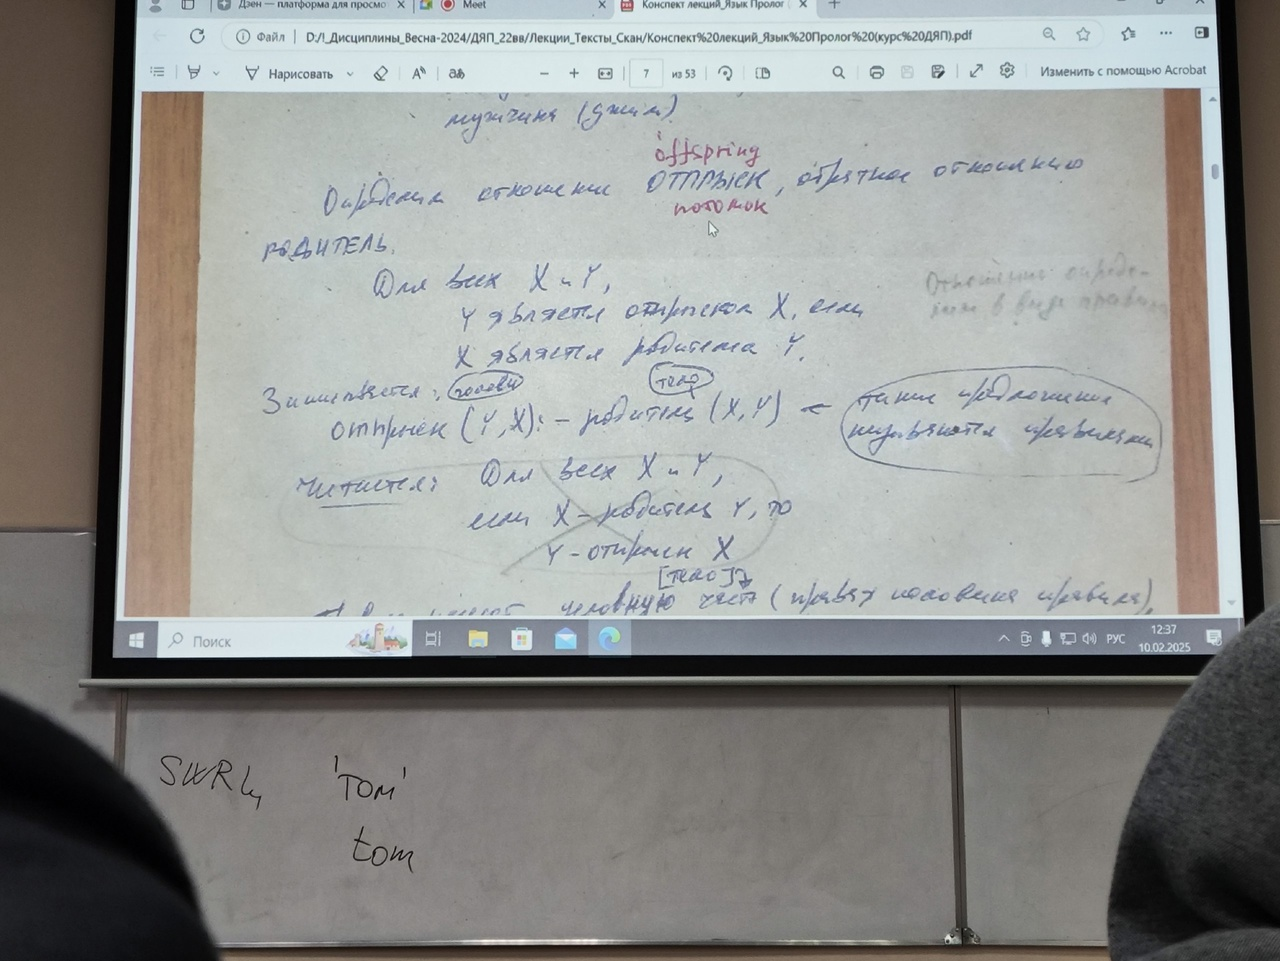 Дзен — платформа для просмо
Meet
Конспект лекций_Язык Пролог (
Файл
D:/I_Дисциплины_Весна-2024/ДЯП_22вв/Лекции_Тексты_Скан/Конспект%20лекций_Язык%20Пролог%20(курс%20ДЯП).pdf
Нарисовать
7 из 53
Изменить с помощью Acrobat
мужчина (джим)
offspring
Определим отношение ОТПРЫСК, обратное отношению
потомок
РОДИТЕЛЬ.
Для всех X и Y,
Y является отпрыском X, если
X является родителем Y.
Отношение опреде-
Записывается: голова тело
отпрыск (Y,X):- родитель (X,Y) ← такие предложения
называются правилами
Читается: Для всех X и Y,
если X - родитель Y, то
Y - отпрыск X
[тело]
условную часть (правая половина правила),
Поиск
РУС
12:37
10.02.2025
SWRL, 'Tom'
tom